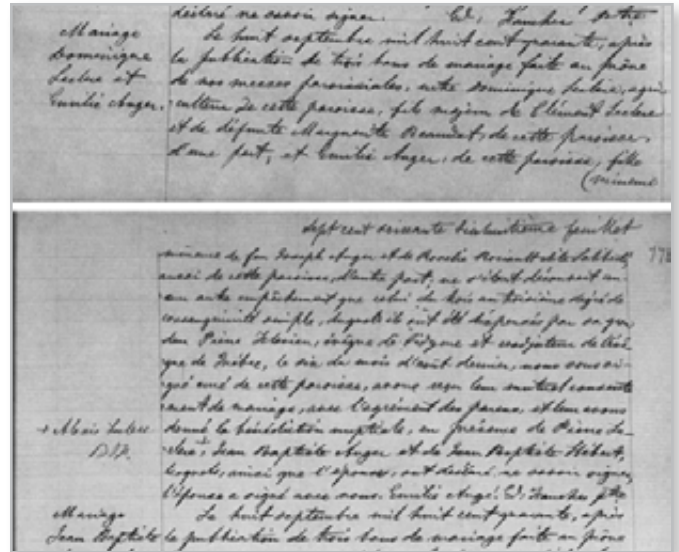 déclaré ne savoir signer. Ed. Faucher Ptre
Mariage
Dominique
Leclerc et
Emilie Auger.
Le huit septembre mil huit cent quarante, après
la publication de trois bans de mariage faite au prône
de nos messes paroissiales, entre Dominique Leclerc, agri-
culteur de cette paroisse, fils majeur de Clément Leclerc
et de défunte Marguerite Beaudet, de cette paroisse,
d'une part; et Emilie Auger, de cette paroisse, fille
(mineure
Sept cent soixante dixhuitième feuillet
778
mineure de feu Joseph Auger et de Rosalie
aussi de cette paroisse, d'autre part; ne s'étant découvert au-
cun autre empêchement que celui du trois au troisième degré de
consanguinité simple, duquel ils ont été dispensés par sa gran-
deur Pierre Flavien, évêque de Sidyme et coadjuteur de l'évê-
que de Québec, le six du mois d'août dernier, nous soussi-
gné curé de cette paroisse, avons reçu leur mutuel consente-
ment de mariage, avec l'agrément des parens, et leur avons
donné la bénédiction nuptiale, en présence de Pierre Le-
clerc +, Jean Baptiste Auger et de Jean Baptiste Hébert,
lesquels, ainsi que l'époux, ont déclaré ne savoir signer,
l'épouse a signé avec nous. Emilie Augé. Ed. Faucher Ptre
Mariage
Jean Baptiste
Le huit septembre mil huit cent quarante, après
la publication de trois bans de mariage faite au prône